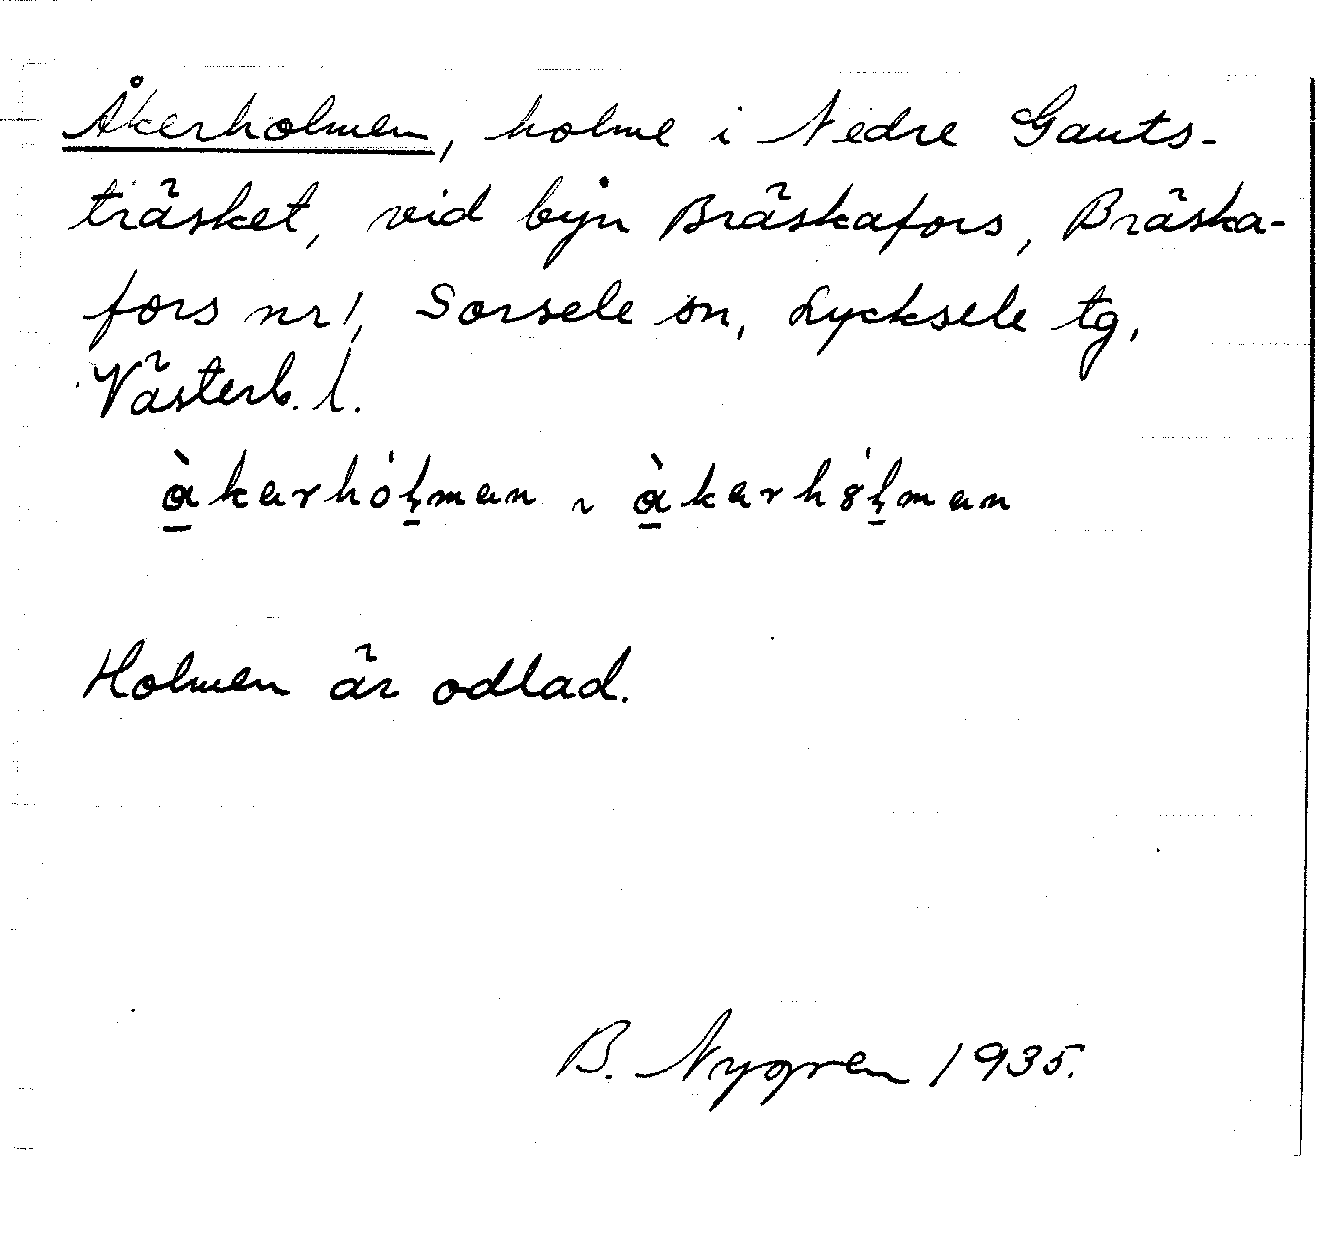 Åkerholmen, holme i Nedre Gauts-
träsket, vid byn Bräskafors, Bräska-
fors nr 1, Sorsele sn, Lycksele tg,
Västerb. l.
Holmen är odlad.
B. Nygren 1935.